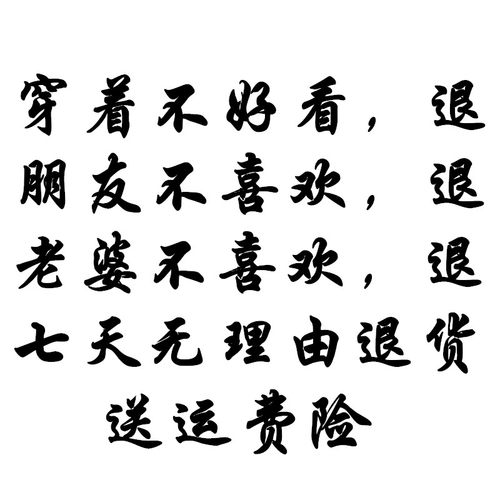 穿着不好看，退
朋友不喜欢，退
老婆不喜欢，退
七天无理由退货
送运费险